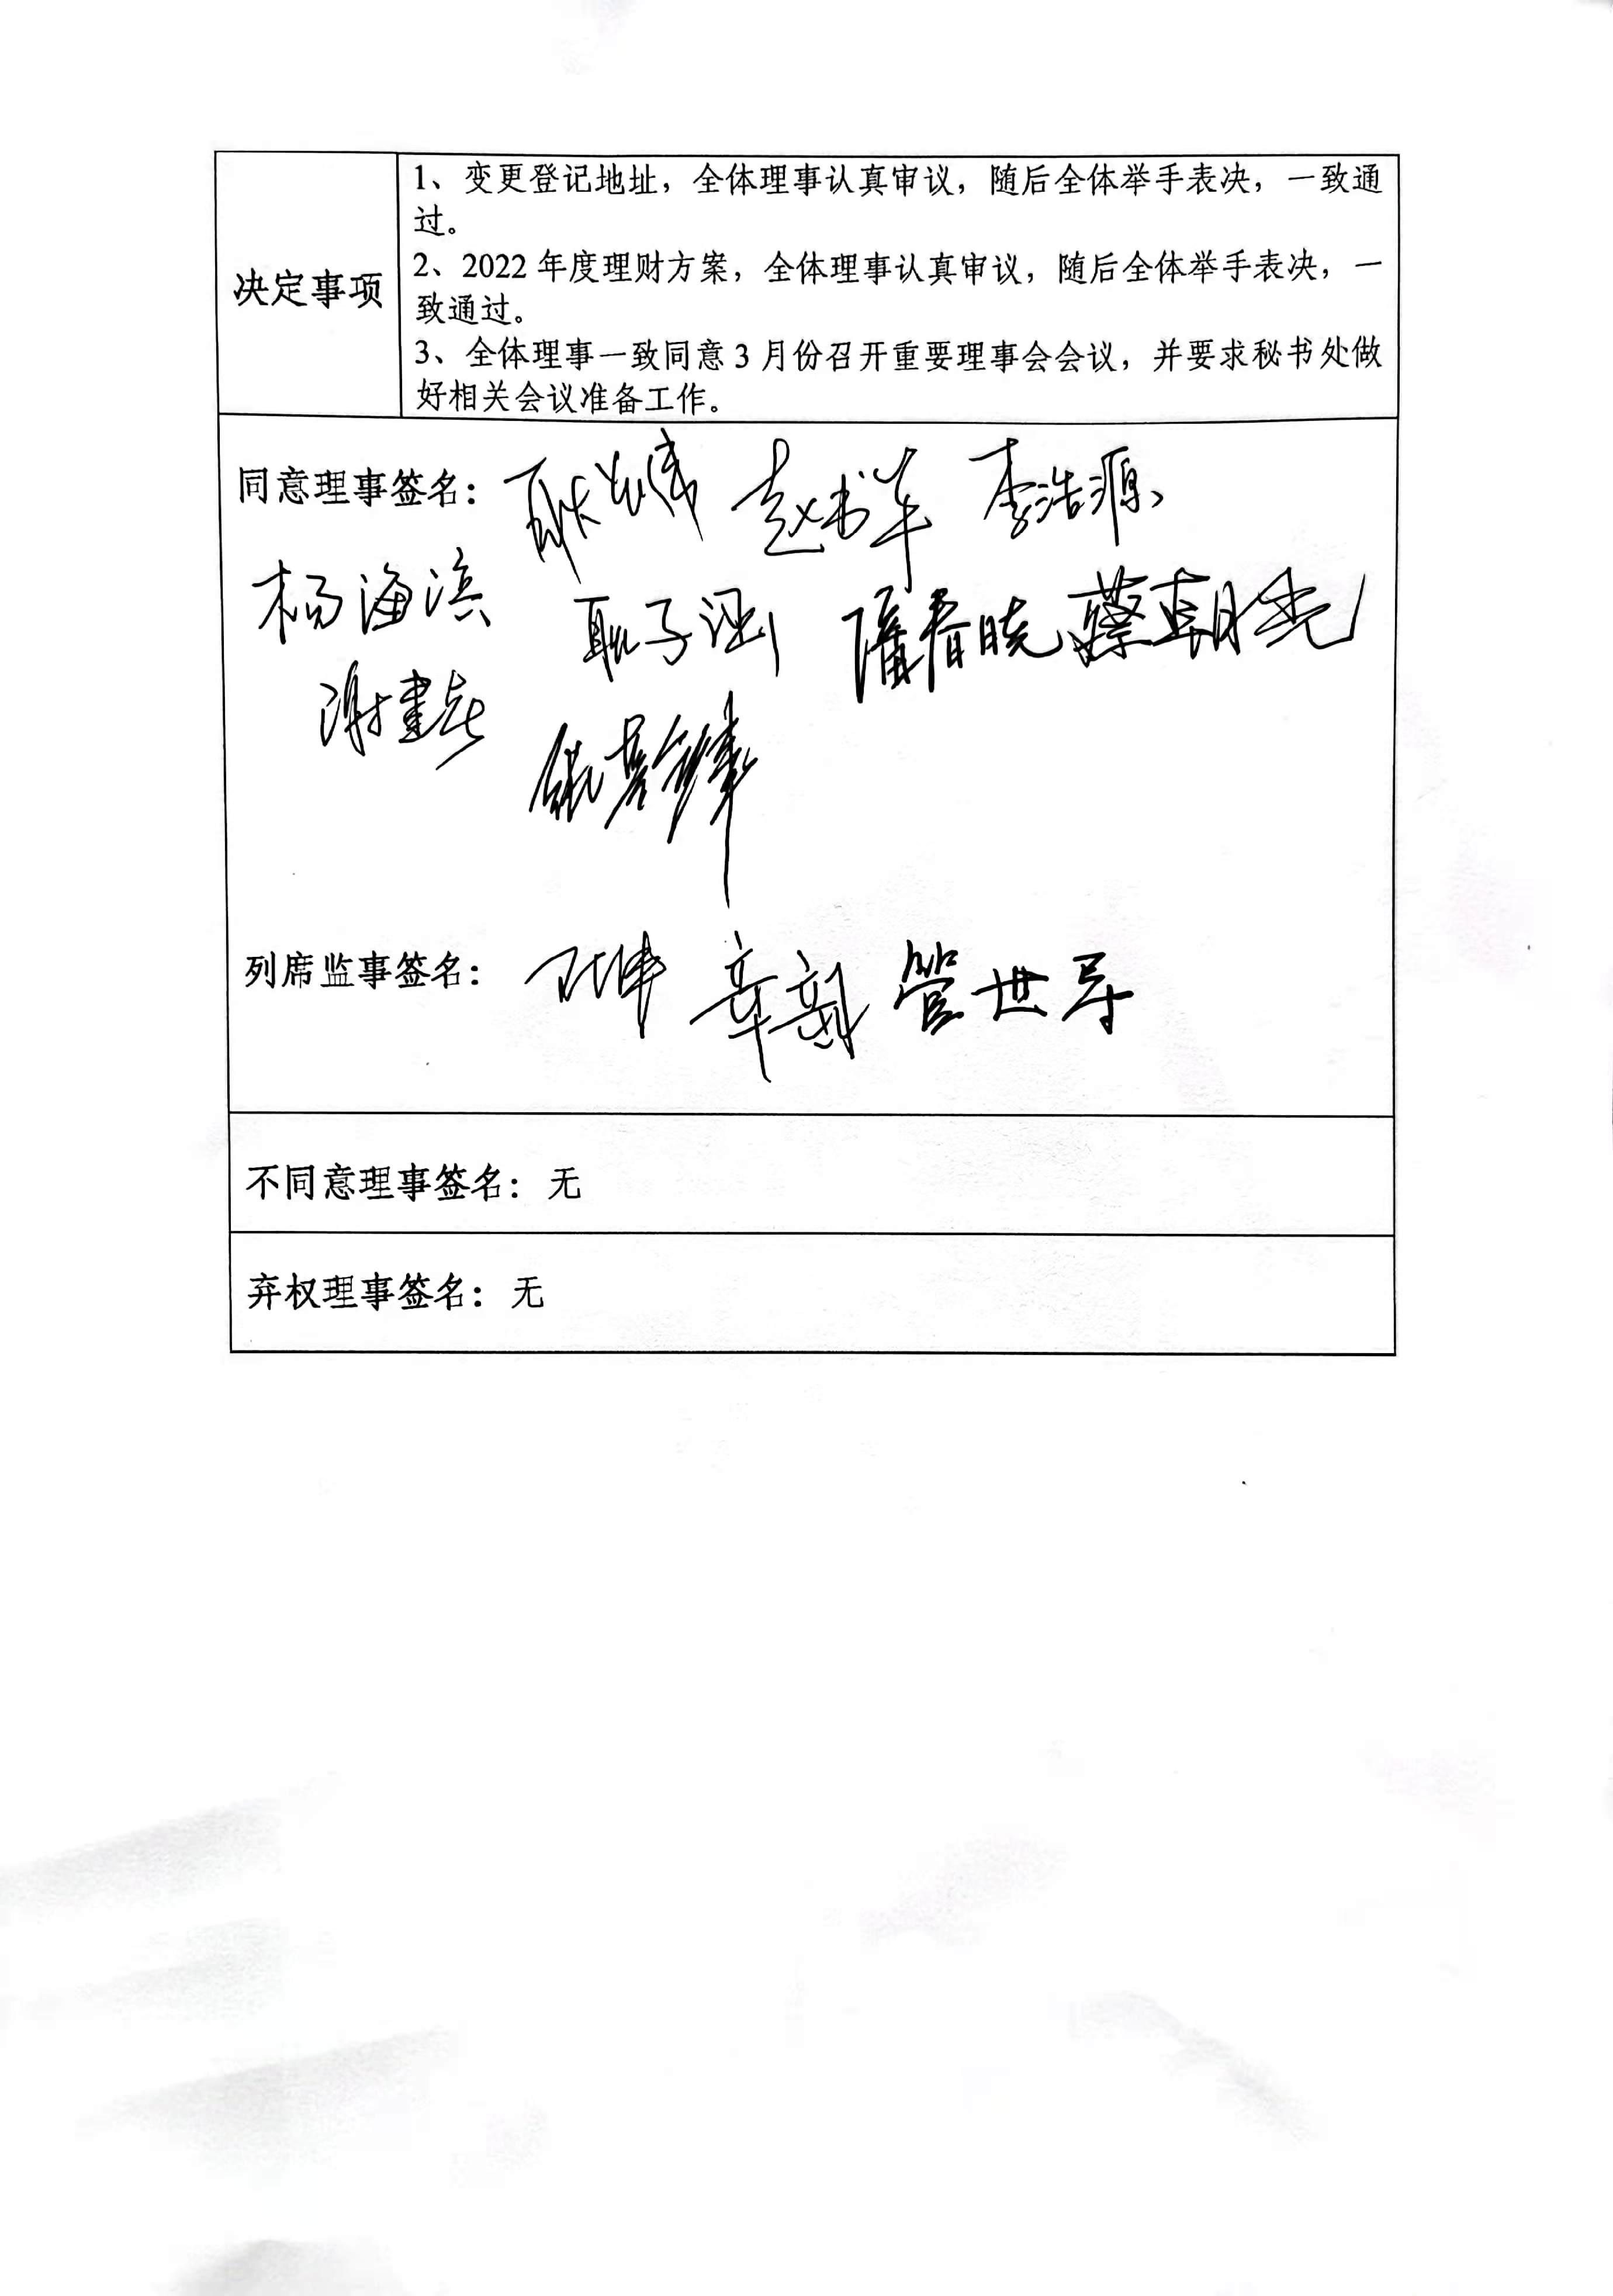 决定事项
1、变更登记地址，全体理事认真审议，随后全体举手表决，一致通
过。
2、2022 年度理财方案，全体理事认真审议，随后全体举手表决，一
致通过。
3、全体理事一致同意 3 月份召开重要理事会会议，并要求秘书处做
好相关会议准备工作。
同意理事签名： 李浩源
杨海滨 耿子涵 隋春晓 蔡朝先
谢建
列席监事签名： 管世
不同意理事签名：无
弃权理事签名：无